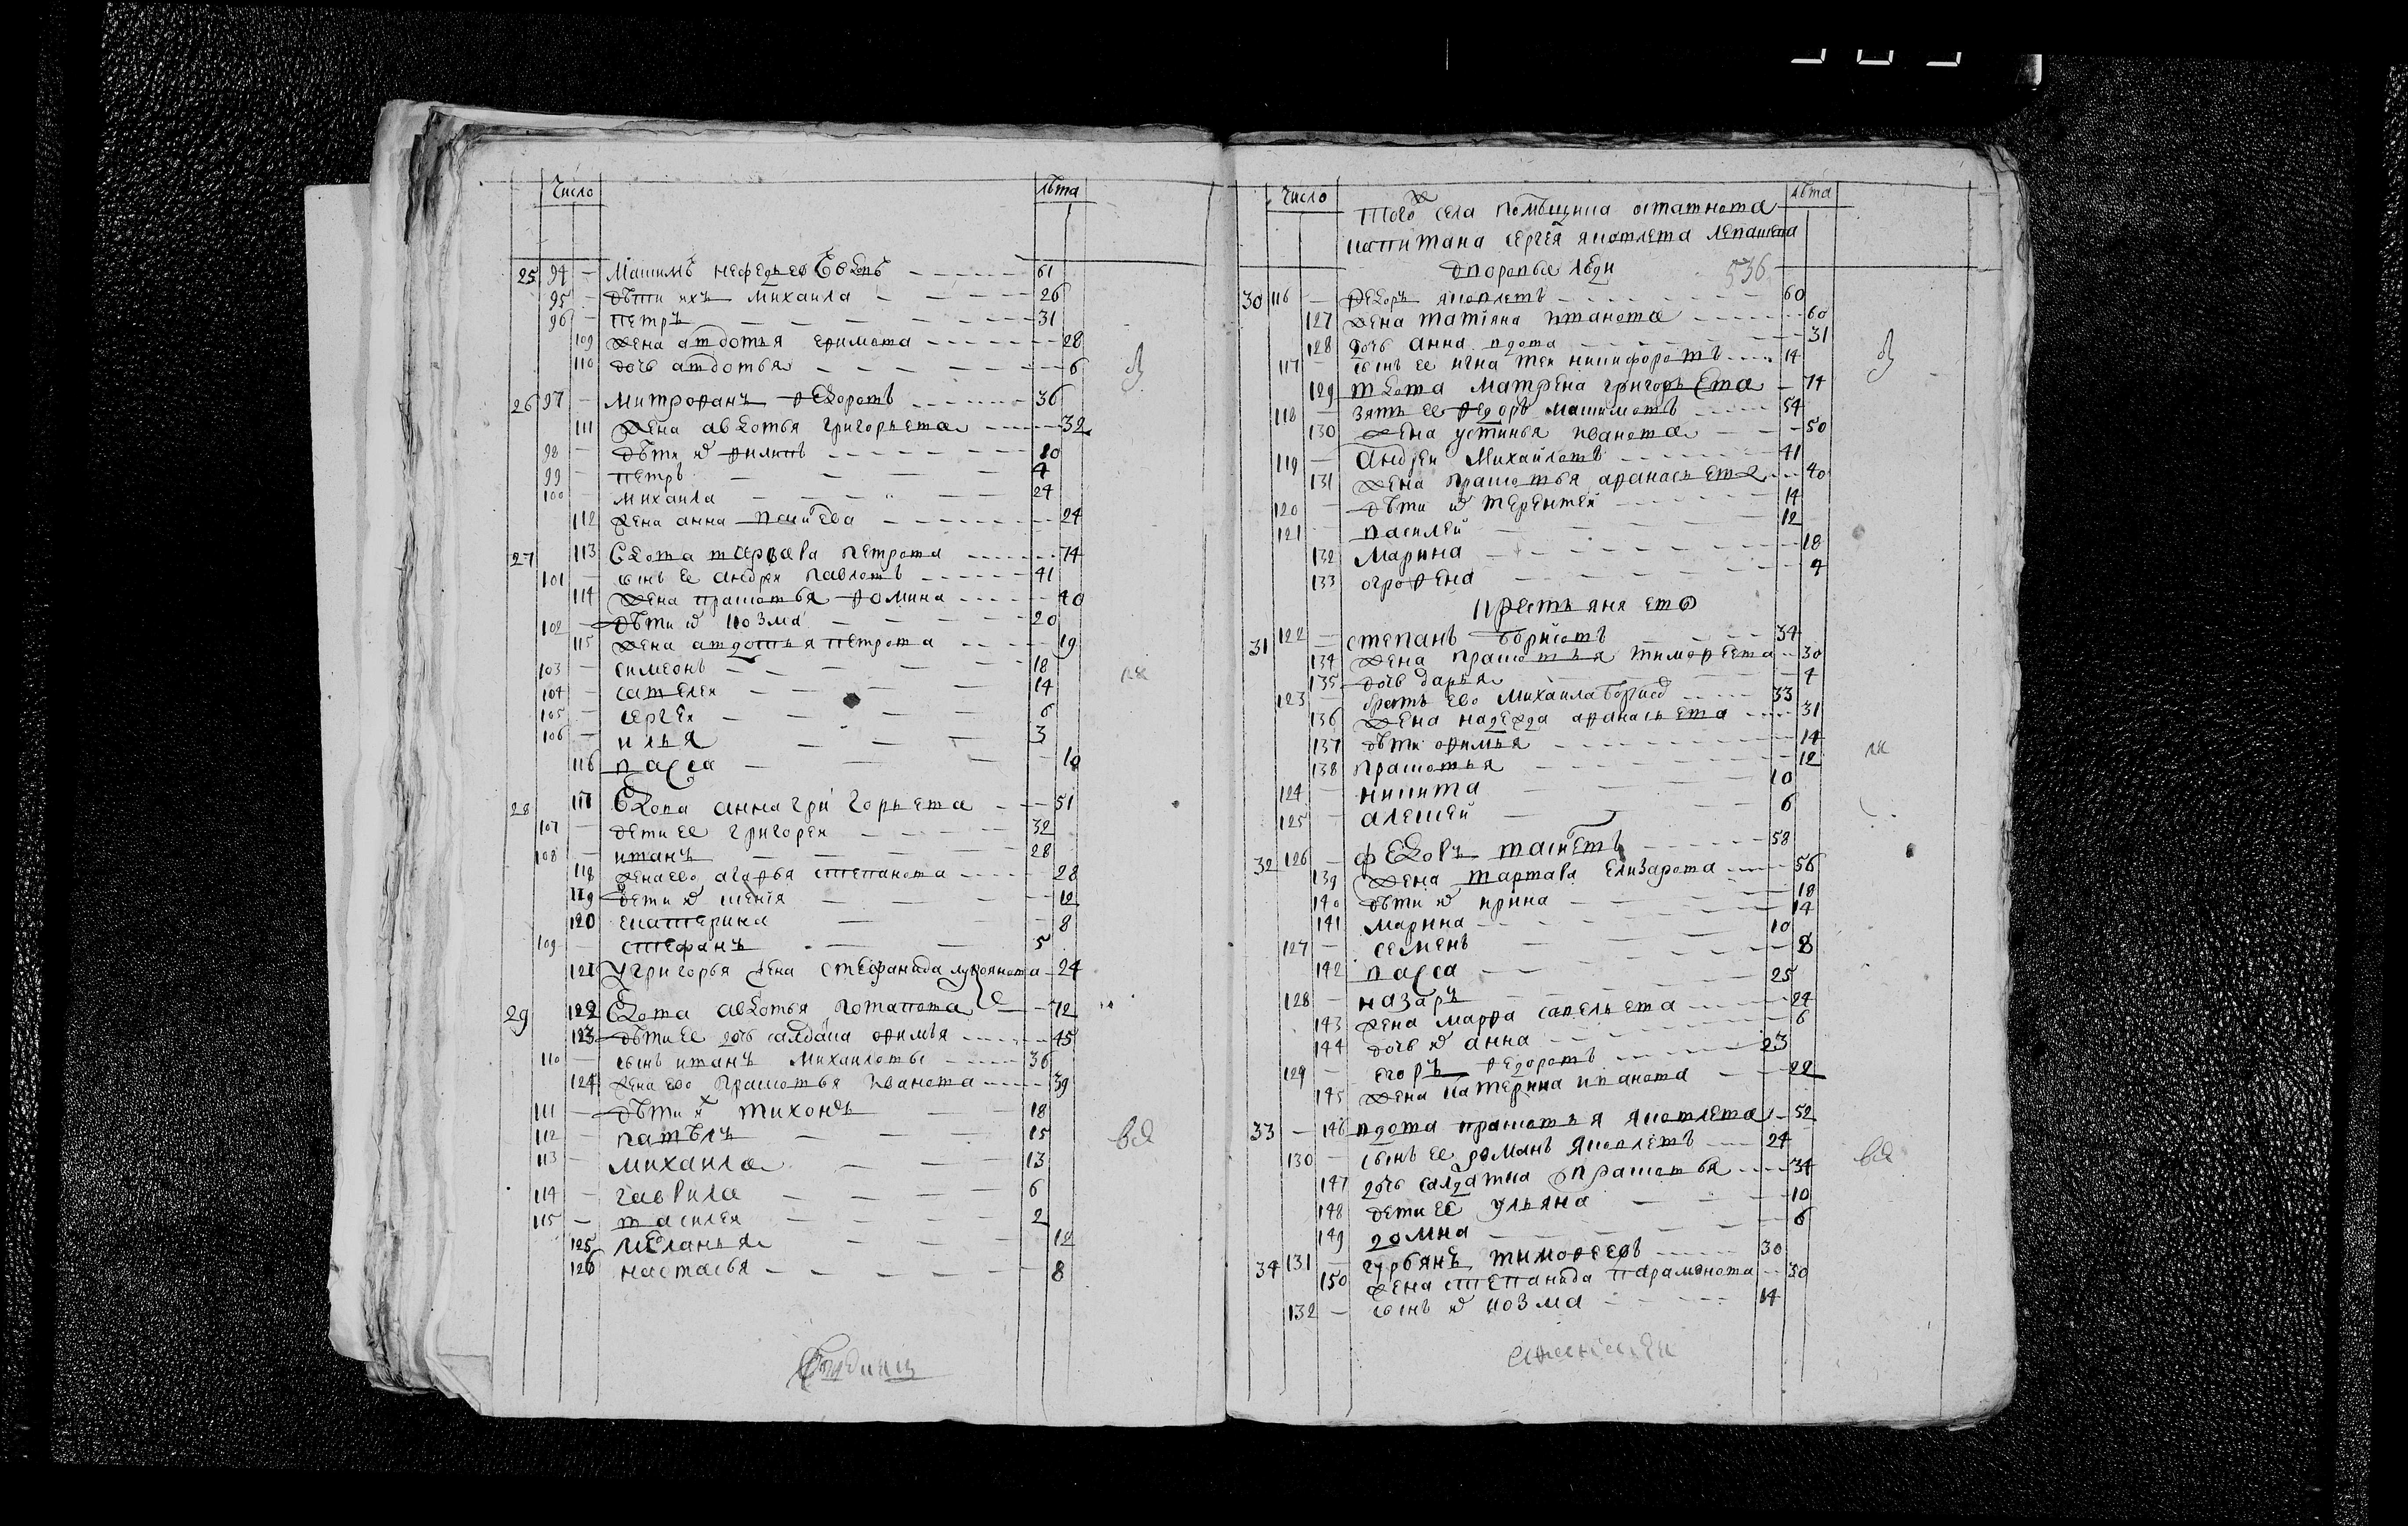 Число лѣта
25 94 – Максимъ нефедьевъ вдовъ 61
95 – дѣти ихъ михаила 26
96 – петръ 31
109 жена авдотья ефимова 28
110 дочь авдотья 6
26 97 – митрофанъ федоровъ 36
111 жена авдотья григорьева 32
98 – дѣти их филипъ 10
99 – петръ 4
100 – михаила 24
112 жена анна 24
27 113 вдова варвара петрова 74
101 – сынъ ее андреи павловъ 41
114 жена прасковья фомина 40
102 – дѣти их козма 20
115 жена авдотья петрова 19
103 – симеонъ 18
104 – савелеи 14
105 – сергеи 6
106 – илья 3
116 васса 10
28 117 вдова анна григорьева 51
107 – дети ее григореи 32
108 – иванъ 28
118 жена ево агафья степанова 28
119 дети их ксенія 12
120 екатерина 8
109 – стефанъ 5
121 у григорья жена стефанида лукоянова 24
29 122 вдова авдотья потапова 72
123 дѣти ее дочь салдацка офимья 45
110 – сынъ иванъ михаиловъ 36
124 жена ево прасковья иванова 39
111 – дѣти их тихонъ 18
112 – павѣлъ 15
113 – михаила 13
114 – гаврила 6
115 – василеи 2
125 меланья 12
126 настасья 8
Число лѣта
того ж села помѣщика отставнова
капитана сергея яковлева
дворовые люди
536
30 116 – федоръ яковлевъ 60
127 жена татіяна иванова 60
128 дочь анна вдова 31
117 – сынъ ее игнатеи никифоровъ 14
129 вдова матрена григорьева 74
118 зять ее федоръ максимовъ 54
130 жена устинья иванова 50
119 – андреи михаиловъ 41
131 жена прасковья афанасьева 40
120 – дѣти их терентеи 14
121 василей 12
132 марина 18
133 огрофена 4
крестьяня ево
31 122 – степанъ борисовъ 34
134 жена прасковья тимофеева 30
135 дочь дарья 4
123 братъ ево михаила борисов 33
136 жена надежда афанасьева 31
137 дѣти офимья 14
138 прасковья 12
124 – никита 10
125 – алексей 6
32 126 – федоръ 58
139 жена варвара елизарова 56
140 дѣти их ирина 18
141 марина 14
127 – семенъ 10
142 васса 8
128 – назаръ 25
143 жена марфа савельева 24
144 дочь их анна 6
129 – егоръ федоровъ 23
145 жена катерина иванова 22
33 – 146 вдова прасковья яковлева 52
130 – сынъ ее романъ яковлевъ 24
147 дочь салдатка прасковья 34
148 дети ее ульяна 10
149 домна 6
34 131 – гурьянъ тимофеевъ 30
150 жена степанида парамонова 30
132 – сынъ их козма 14